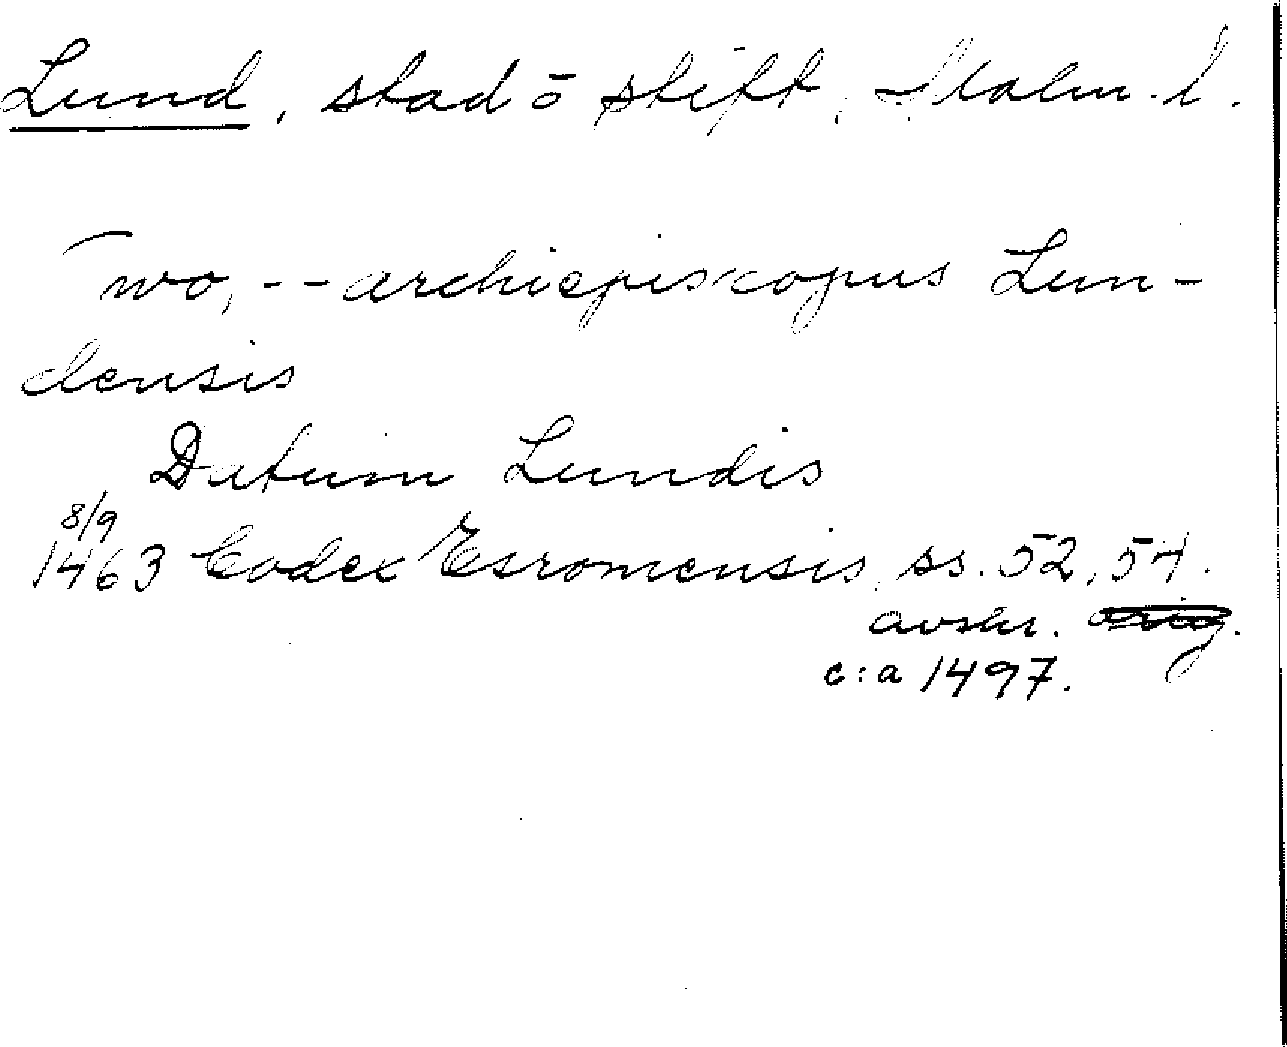 Lund, stad o stift, Malm. l.
Two, -- archiepiscopus Lun-
densis
Datum Lundis
8/9
1463 Codex Esromensis, ss. 52, 54.
avskr. orig.
c:a 1497.